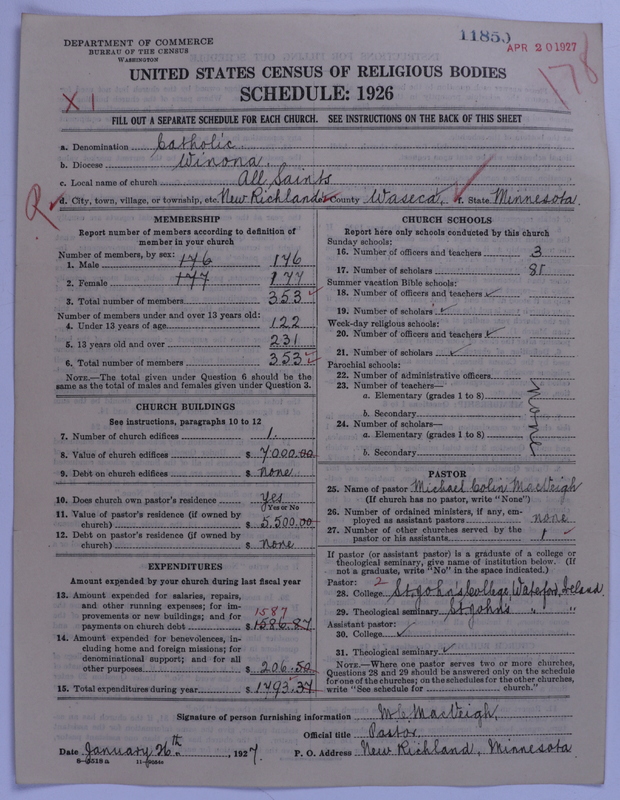 DEPARTMENT OF COMMERCE
BUREAU OF THE CENSUS
WASHINGTON
11850
APR 20 1927
178
UNITED STATES CENSUS OF RELIGIOUS BODIES
SCHEDULE: 1926
X 1
FILL OUT A SEPARATE SCHEDULE FOR EACH CHURCH. SEE INSTRUCTIONS ON THE BACK OF THIS SHEET
a. Denomination Catholic
b. Diocese Winona.
c. Local name of church All Saints
R d. City, town, village, or township, etc. New Richland e. County Waseca, f. State Minnesota.
MEMBERSHIP
Report number of members according to definition of
member in your church
Number of members, by sex:
1. Male 176 176
2. Female 177 177
3. Total number of members 353
Number of members under and over 13 years old:
4. Under 13 years of age 122
5. 13 years old and over 231
6. Total number of members 353
NOTE.—The total given under Question 6 should be the
same as the total of males and females given under Question 3.
CHURCH BUILDINGS
See instructions, paragraphs 10 to 12
7. Number of church edifices 1.
8. Value of church edifices $ 7000.00
9. Debt on church edifices $ none
10. Does church own pastor's residence yes
Yes or No
11. Value of pastor's residence (if owned by
church) $ 5,500.00
12. Debt on pastor's residence (if owned by
church) $ none
EXPENDITURES
Amount expended by your church during last fiscal year
13. Amount expended for salaries, repairs,
and other running expenses; for im-
provements or new buildings; and for
payments on church debt $ 1586.87
1587
14. Amount expended for benevolences, in-
cluding home and foreign missions; for
denominational support; and for all
other purposes $ 206.50
15. Total expenditures during year $ 1793.37
CHURCH SCHOOLS
Report here only schools conducted by this church
Sunday schools:
16. Number of officers and teachers 3
17. Number of scholars 81
Summer vacation Bible schools:
18. Number of officers and teachers
19. Number of scholars
Week-day religious schools:
20. Number of officers and teachers
21. Number of scholars
Parochial schools:
22. Number of administrative officers
23. Number of teachers—
a. Elementary (grades 1 to 8)
b. Secondary
24. Number of scholars—
a. Elementary (grades 1 to 8)
b. Secondary
None
PASTOR
25. Name of pastor Michael Colin MacVeigh
(If church has no pastor, write "None")
26. Number of ordained ministers, if any, em-
ployed as assistant pastors none
27. Number of other churches served by the
pastor or his assistants 1
If pastor (or assistant pastor) is a graduate of a college or
theological seminary, give name of institution below. (If
not a graduate, write "No" in the space indicated.)
Pastor: 2
28. College St John's College, Waterford, Ireland.
29. Theological seminary St Johns " "
Assistant pastor:
30. College
31. Theological seminary
NOTE.—Where one pastor serves two or more churches,
Questions 28 and 29 should be answered only on the schedule
for one of the churches; on the schedules for the other churches,
write "See schedule for church."
Signature of person furnishing information M C MacVeigh,
Official title Pastor
Date January 26th, 1927. P. O. Address New Richland, Minnesota